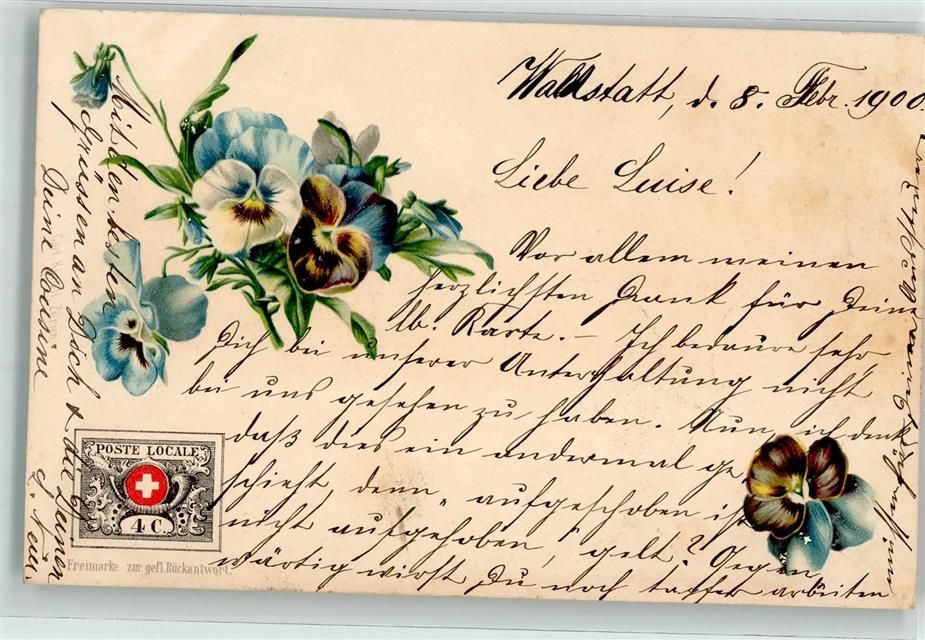 Waldstatt, d. 8. Febr. 1900.
Liebe Luise!
Vor allem meinen
herzlichsten Dank für Deine
lb. Karte. – Ich bedaure sehr
Dich bei unserer Unterhaltung nicht
bei uns gesehen zu haben. Nun, ich denke
daß dies ein andermal ge-
schieht, denn „aufgeschoben ist
nicht aufgehoben", gelt? Gegen
wärtig wirst Du noch arbeiten
müssen für Deine
Mit den besten
Grüssen an Dich & die Deinen
Deine Cousine
POSTE LOCALE
4 C.
Freimarke zur gefl. Rückantwort.